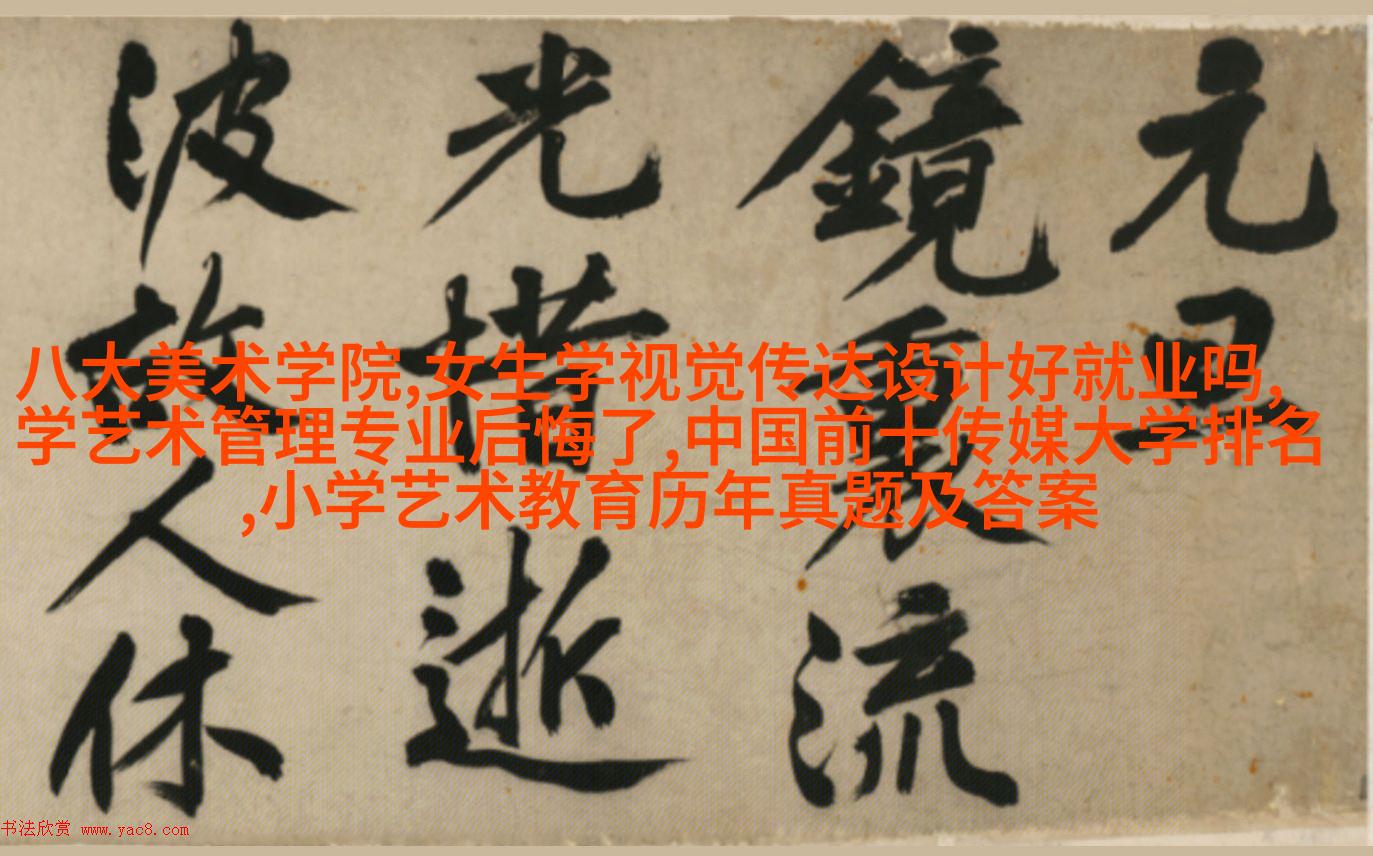 元
鏡裏流
光惜逝
波故人休
八大美术学院,女生学视觉传达设计好就业吗,
学艺术管理专业后悔了,中国前十传媒大学排名
,小学艺术教育历年真题及答案
书法欣赏 www.yac8.com